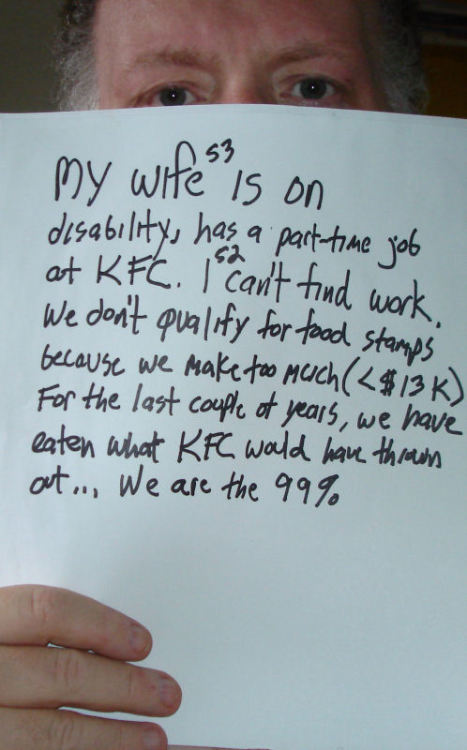 My wife 53 is on
disability, has a part-time job
at KFC. I 52 can't find work.
We don't qualify for food stamps
because we make too much (<$13K)
For the last couple of years, we have
eaten what KFC would have thrown
out... We are the 99%